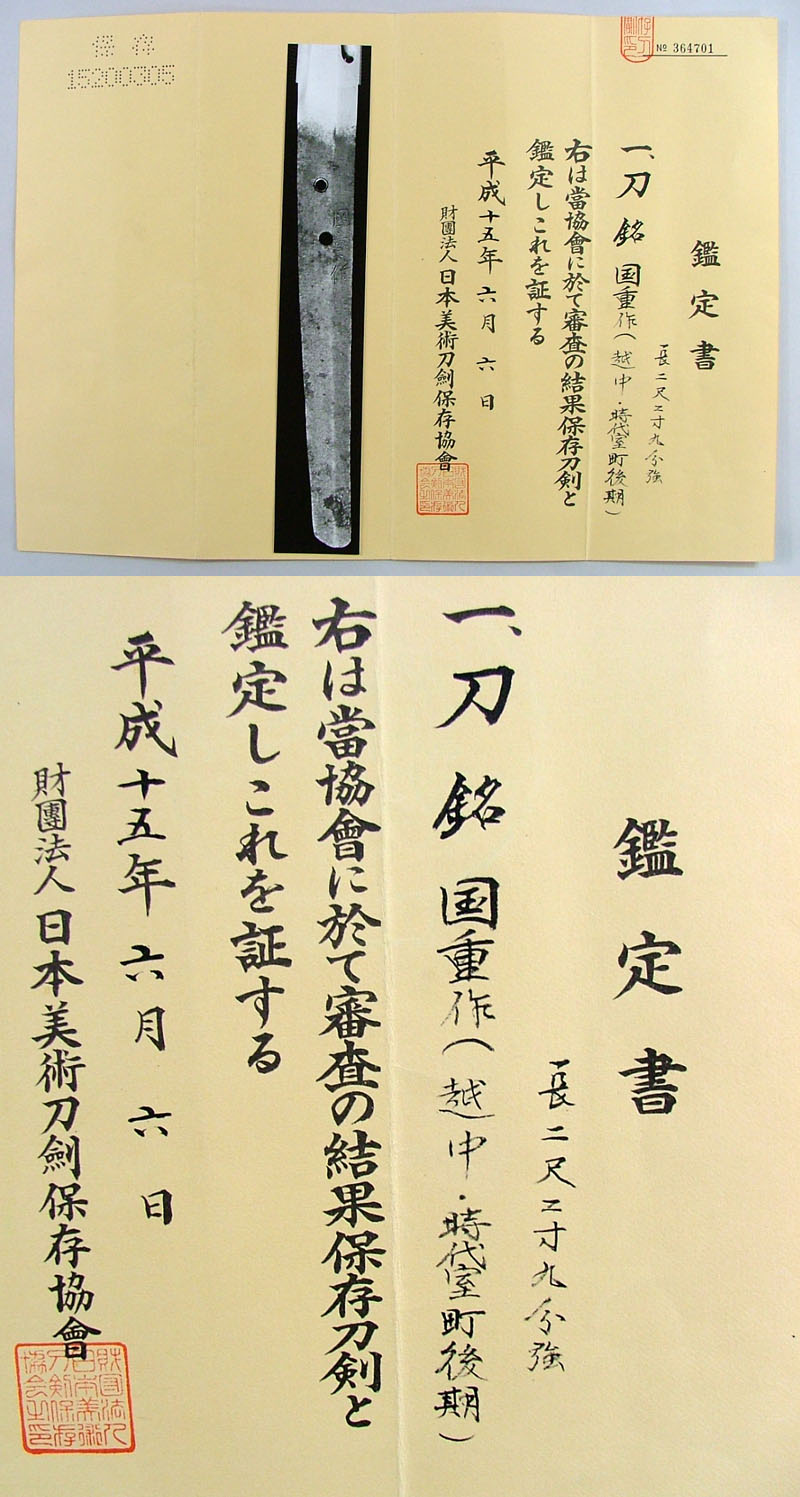 保存
15200305
No 364701
鑑定書
長二尺二寸九分強
一、刀 銘 国重作(越中・時代室町後期)
右は當協會に於て審査の結果保存刀剣と
鑑定しこれを証する
平成十五年六月六日
財團法人日本美術刀劍保存協會
鑑定書
長二尺二寸九分強
一、刀 銘 国重作(越中・時代室町後期)
右は當協會に於て審査の結果保存刀剣と
鑑定しこれを証する
平成十五年六月六日
財團法人日本美術刀劍保存協會